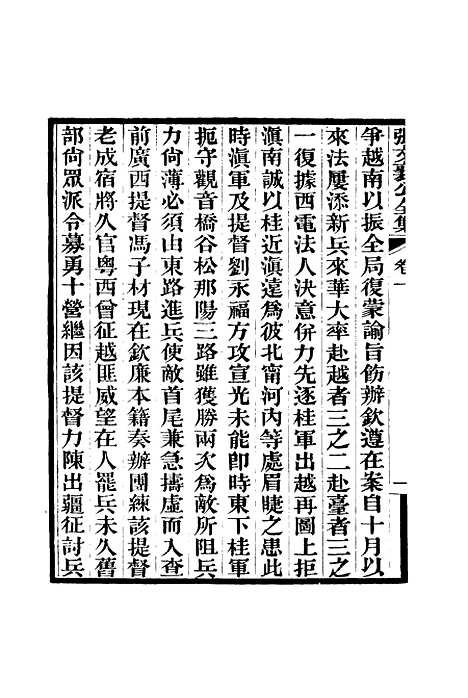 張文襄公全集 卷一 一
爭越南以振全局復蒙諭旨飭辦欽遵在案自十月以
來法屢添新兵來華大率赴越者三之二赴臺者三之
一復據西電法人決意併力先逐桂軍出越再圖上拒
滇南誠以桂近滇遠為彼北甯河內等處眉睫之患此
時滇軍及提督劉永福方攻宣光未能卽時東下桂軍
扼守觀音橋谷松那陽三路雖獲勝兩次為敵所阻兵
力尙薄必須由東路進兵使敵首尾兼急擣虛而入查
前廣西提督馮子材現在欽廉本籍奏辦團練該提督
老成宿將久官粵西曾征越匪威望在人罷兵未久舊
部尙眾派令募勇十營繼因該提督力陳出疆征討兵